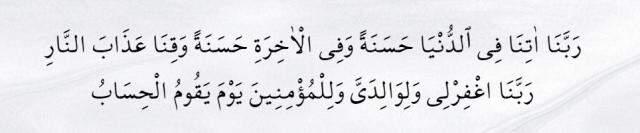 رَبَّنَا اٰتِنَا فِى ٱلدُّنْيَا حَسَنَةً وَفِى الْاٰخِرَةِ حَسَنَةً وَقِنَا عَذَابَ النَّارِ
رَبَّنَا اغْفِرْلِى وَلِوَالِدَىَّ وَلِلْمُؤْمِنِينَ يَوْمَ يَقُومُ الْحِسَابُ